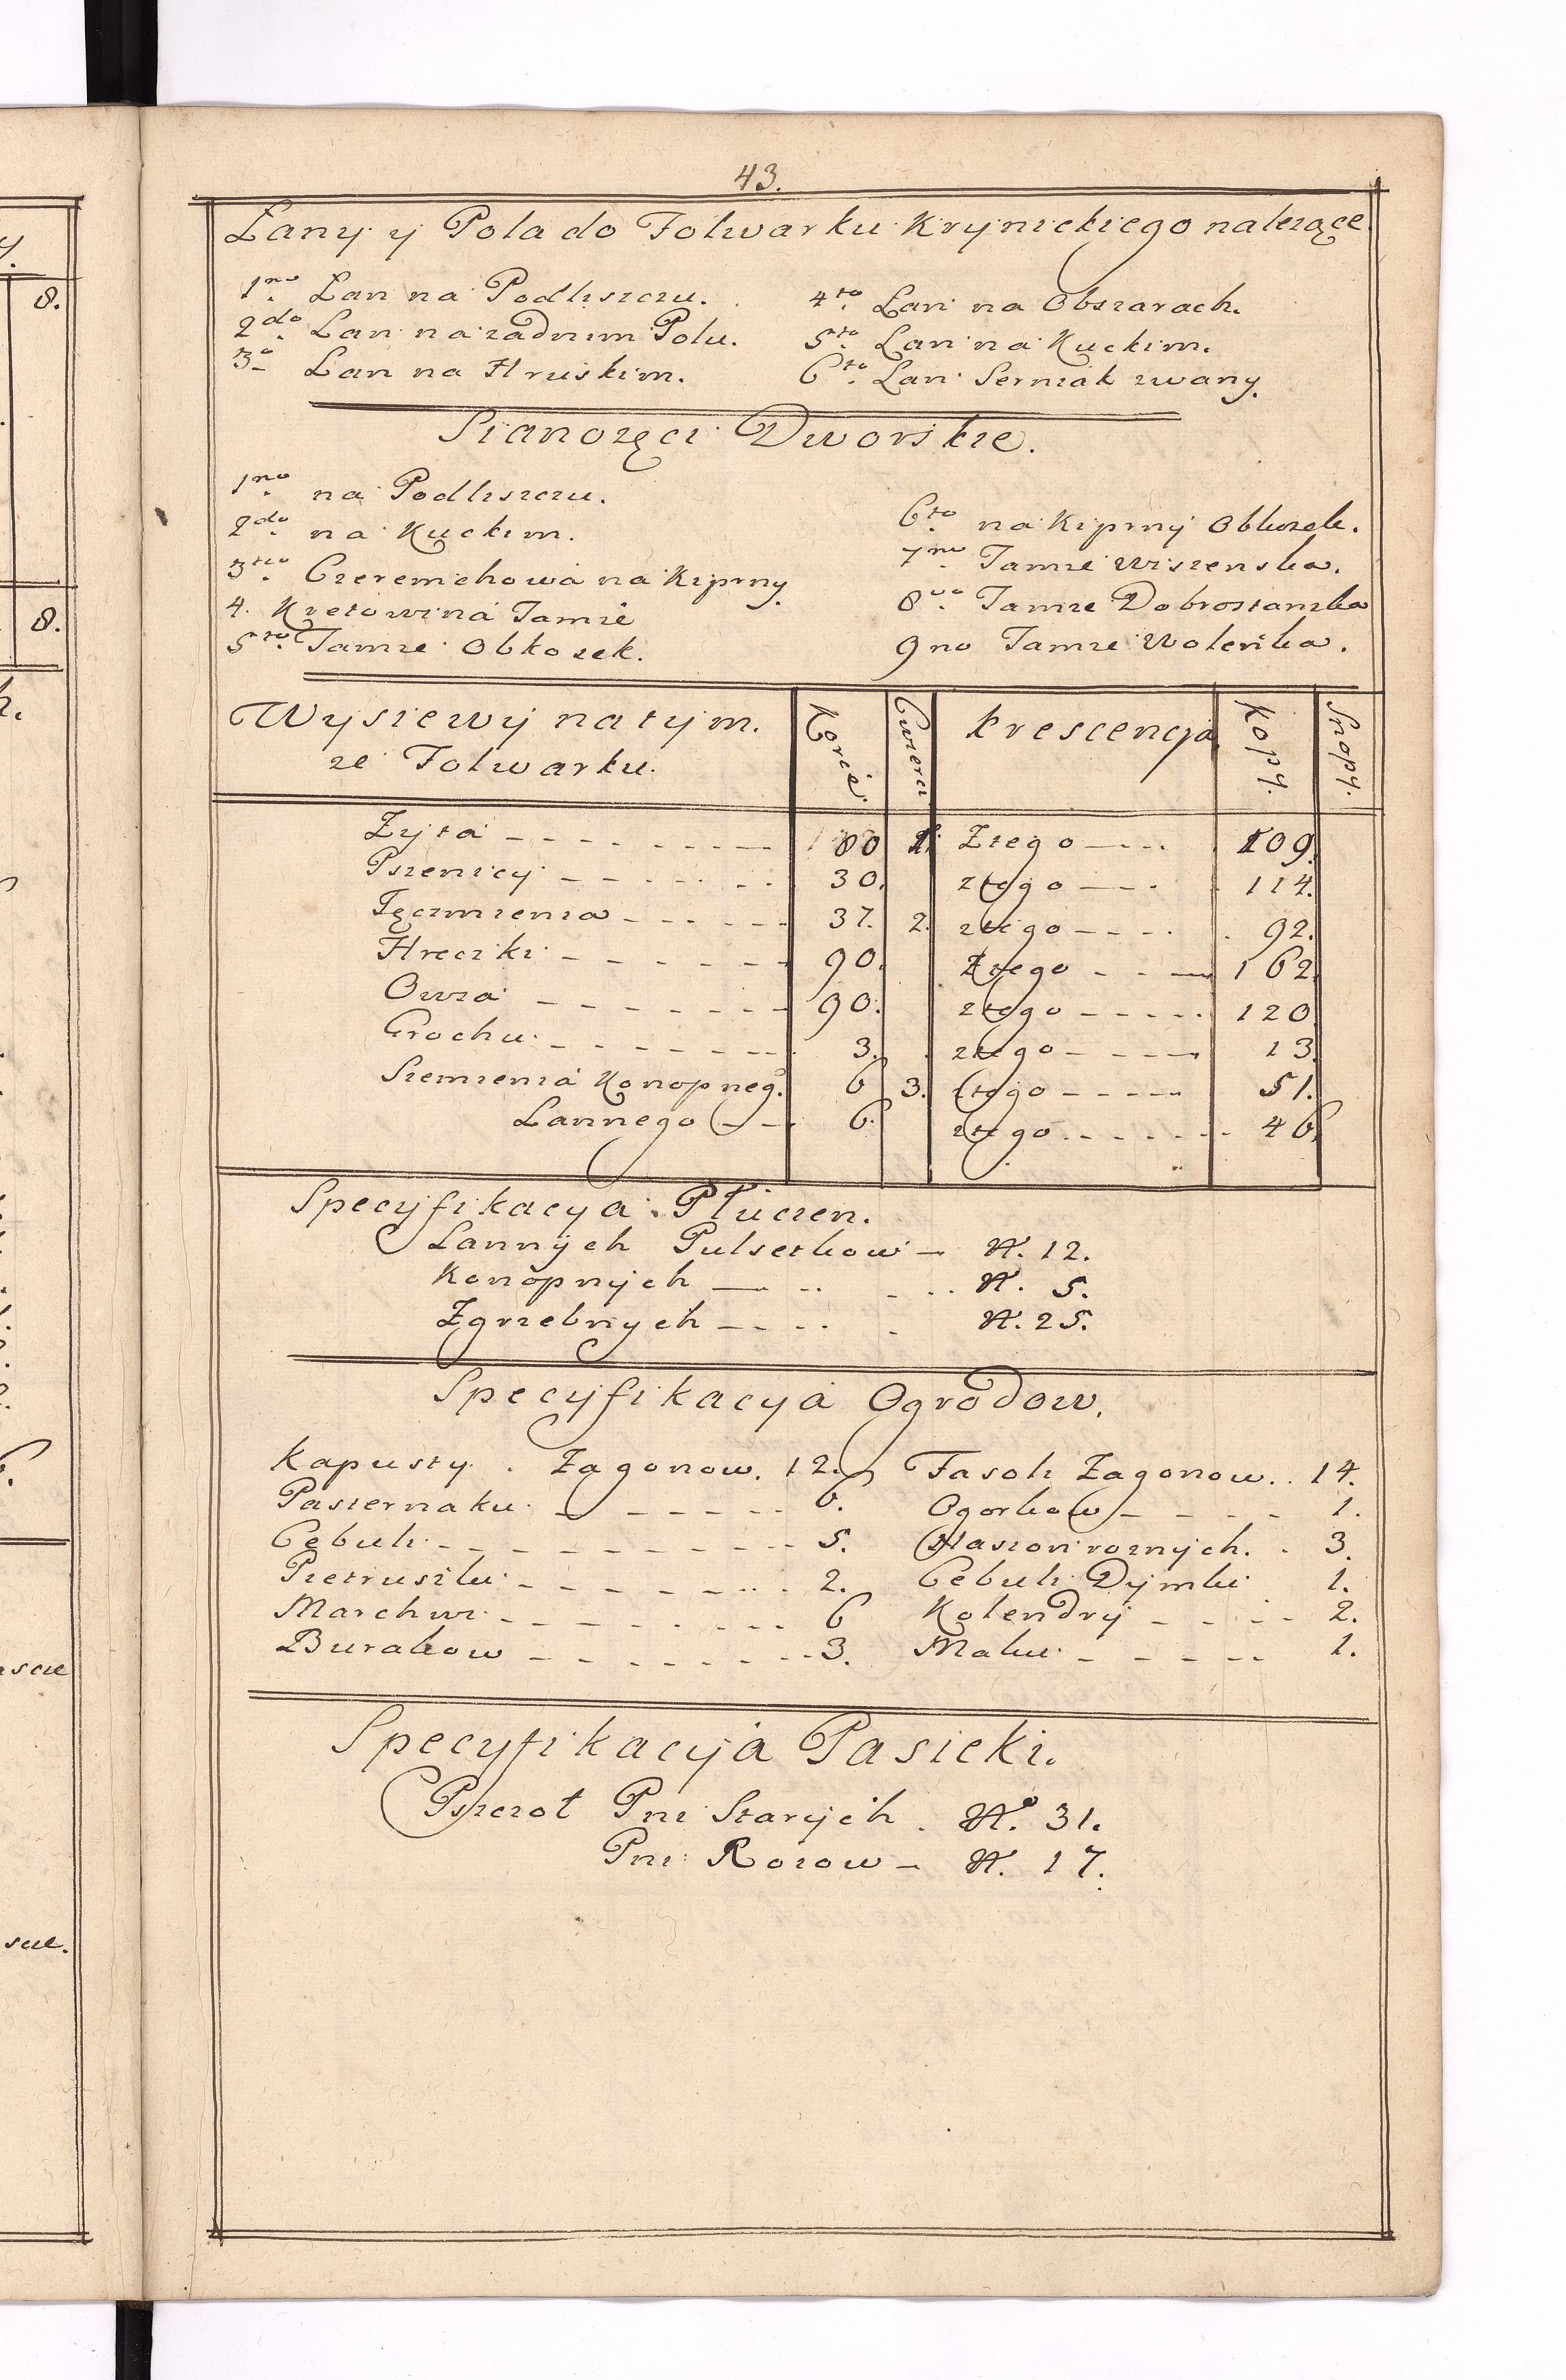 43.
Łany y Pola do Folwarku Krynickiego należące.
1mo Łan na Podliszczu.
2do Łan na zadnim Polu.
3o Łan na Hruskim.
4to Łan na Obszarach.
5to Łan na Kuckim.
6to Łan Serniak zwany.
Sianożęci Dworskie.
1mo na Podliszczu.
2do na Kuckim.
3tio Czeremchowa na Kipiny.
4. Kretowina Tamże
5to Tamże Obkosek.
6to na Kipiny Obkosek.
7mo Tamże Wiszenska.
8vo Tamże Dobrostanska
9no Tamże Wolenska.
Wysiewy na tym. Korce. Cwierci Krescencja Kopy. Snopy.
że Folwarku.
Zyta 80 1. Ztego 109.
Pszenicy 30. ztego 114.
Jęczmienia 37. 2. ztego 92.
Hreczki 90. Ztego 162.
Owsa 90. ztego 120
Grochu 3. ztego 13.
Siemienia Konopneg. 6 3. ztego 51.
Lannego 6. ztego 46.
Specyfikacya Płucien.
Lannych Pulsetkow N. 12.
Konopnych N. 5.
Zgrzebnych N. 25.
Specyfikacya Ogrodow.
Kapusty. Zagonow. 12. Fasoli Zagonow. 14.
Pasternaku 6. Ogorkow 1.
Cebuli 5. Nasion roznych. 3.
Pietruszki 2. Cebuli Dymki 1.
Marchwi 6 Kolendry 2.
Burakow 3. Maku 1.
Specyfikacyja Pasieki.
Pszczoł Pni Starych. No. 31.
Pni Roiow N. 17.
8.
8.